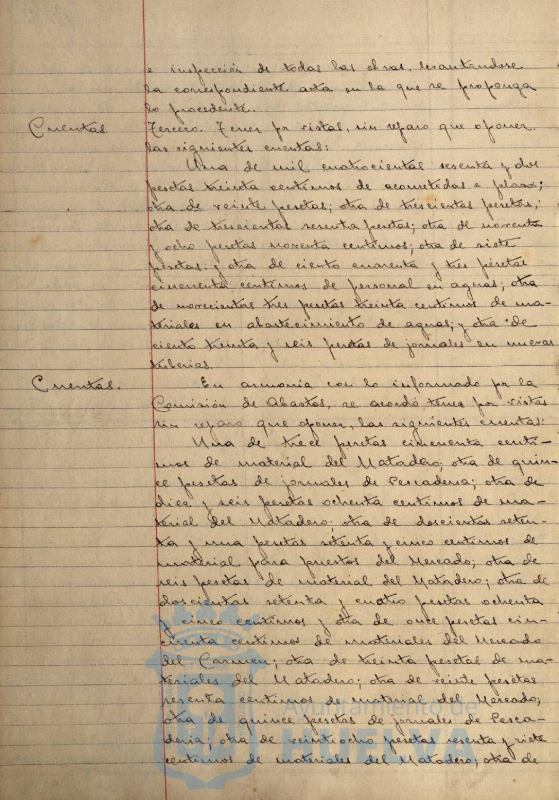 e inspección de todas las obras, levantándose
la correspondiente acta en la que se proponga
lo procedente.
Cuentas. Tercero. Tener por vistas, sin reparo que oponer,
las siguientes cuentas:
Una de mil cuatrocientas sesenta y dos
pesetas treinta centimos de acometidas a plazos;
otra de veinte pesetas; otra de trescientas pesetas;
otra de trescientas sesenta pesetas; otra de noventa
y ocho pesetas noventa centimos; otra de siete
pesetas; y otra de ciento cuarenta y tres pesetas
cincuenta centimos de personal en aguas; otra
de novecientas tres pesetas treinta centimos de ma-
teriales en abastecimiento de aguas; y otra de
ciento treinta y seis pesetas de jornales en nuevas
tuberias.
Cuentas. En armonia con lo informado por la
Comisión de Abastos, se acordó tener por vistas
sin reparo que oponer, las siguientes cuentas:
Una de trece pesetas cincuenta centi-
mos de material del Matadero; otra de quin-
ce pesetas de jornales de Pescaderia; otra de
diez y seis pesetas ochenta centimos de ma-
terial del Matadero; otra de doscientas seten-
ta y una pesetas setenta y cinco centimos de
material para puestos del Mercado; otra de
seis pesetas de material del Matadero; otra de
doscientas setenta y cuatro pesetas ochenta
y cinco centimos y otra de once pesetas cin-
cuenta centimos de materiales del Mercado
del Carmen; otra de treinta pesetas de ma-
teriales del Matadero; otra de veinte pesetas
sesenta centimos de material del Mercado;
otra de quince pesetas de jornales de Pesca-
deria; otra de veintiocho pesetas sesenta y siete
centimos de materiales del Matadero; otra de
Ayuntamiento de
HUELVA